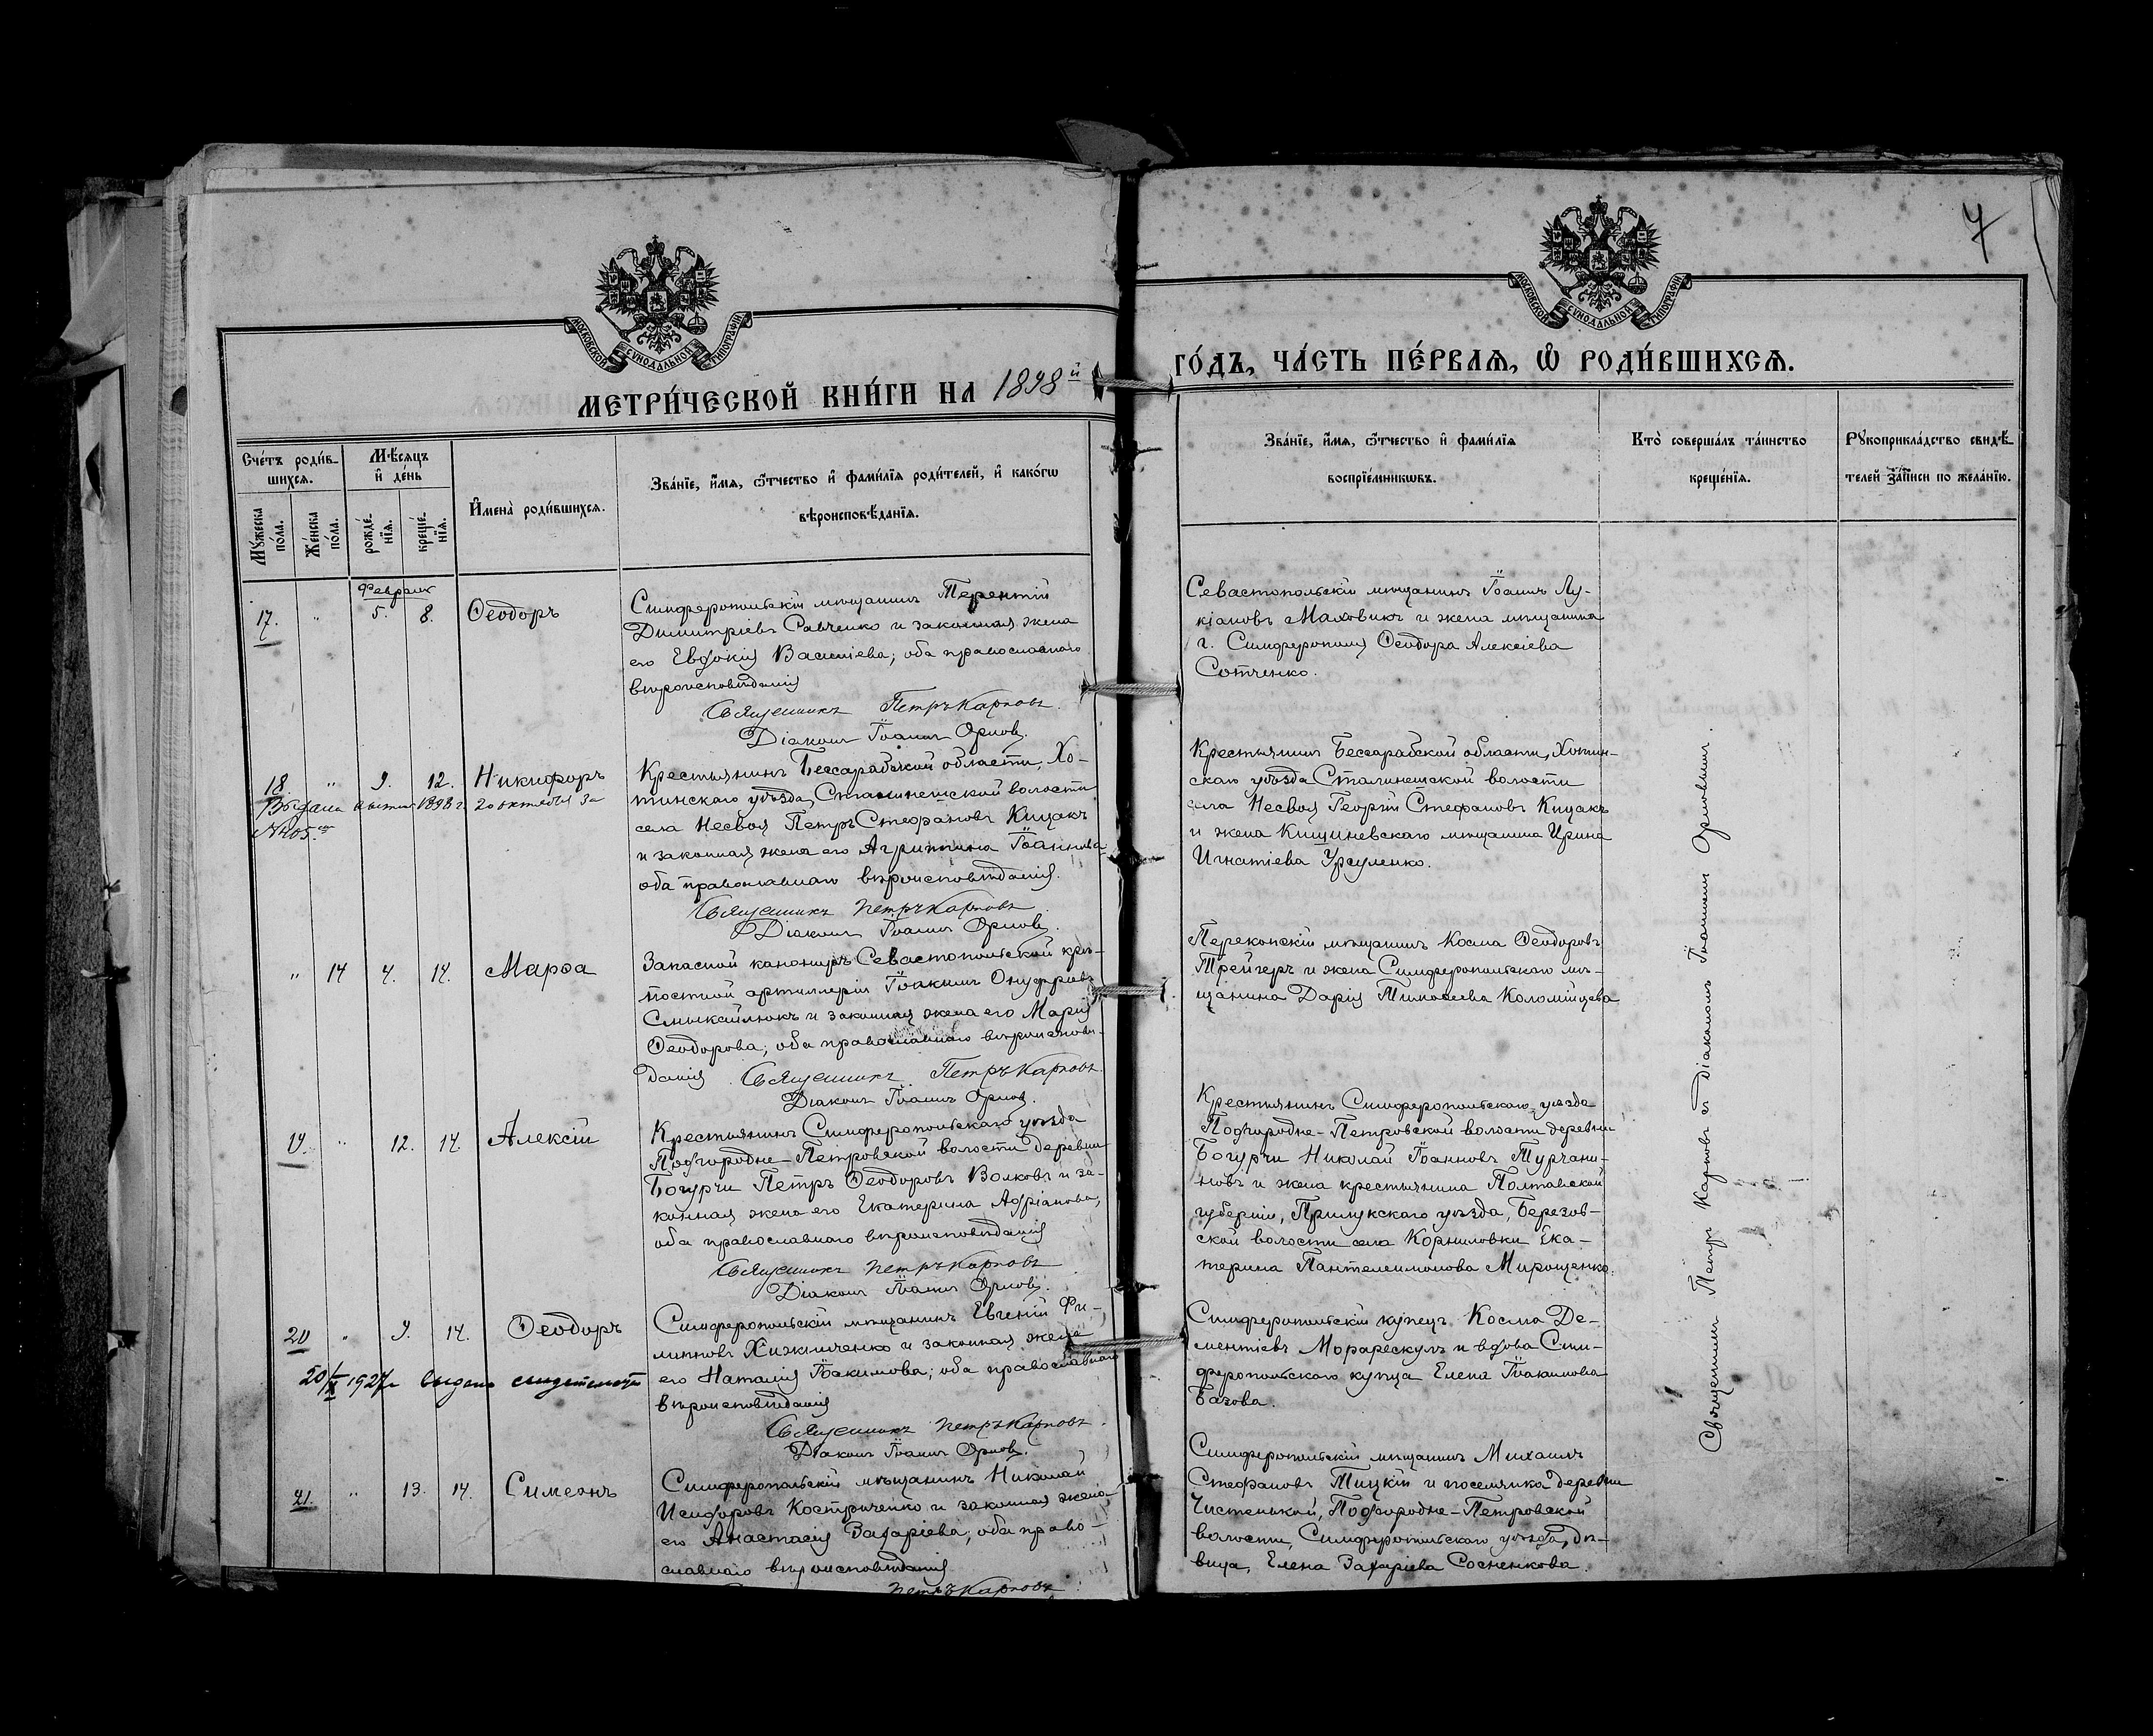 7
МОСКОВСКОЙ СѴНОДАЛЬНОЙ ТИПОГРАФІИ
МОСКОВСКОЙ СѴНОДАЛЬНОЙ ТИПОГРАФІИ
МЕТРИ́ЧЕСКОЙ КНИ́ГИ НА 1898й
ГО́ДЪ, ЧА́СТЬ ПЕ́РВАѦ, Ѽ РОДИ́ВШИХСѦ.
Сче́тъ роди́в-
шихсѧ.
Мѣ́сѧцъ
и҆ де́нь
Мꙋ́жеска
по́ла.
Же́нска
по́ла.
рожде́-
нїѧ.
креще́-
нїѧ.
И҆мена̀ роди́вшихсѧ.
Зва́нїе, и҆́мѧ, ѻ҆́тчество и҆ фами́лїѧ роди́телей, и҆ како́гѡ
вѣроисповѣ́данїѧ.
Зва́нїе, и҆́мѧ, ѻ҆́тчество и҆ фами́лїѧ
воспрїе́мникѡвъ.
Кто̀ соверша́лъ та́инство
креще́нїѧ.
Рꙋкоприкла́дство свидѣ́-
телей за́писи по жела́нїю.
Февраль
17. " 5. 8. Ѳеодоръ
Симферопольскій мѣщанинъ Терентій
Димитріевъ Савченко и законная жена
его Евдокія Василіева; оба православнаго
вѣроисповѣданія
Священникъ Петръ Карповъ.
Діаконъ Іоаннъ Орловъ.
Севастопольскій мѣщанинъ Іоаннъ Лу-
кіановъ Маховикъ и жена мѣщанина
г. Симферополя Ѳеодора Алексіева
Сотченко.
18. " 9. 12. Никифоръ
Выдана 1898 г. 20 октября за
№405
Крестьянинъ Бессарабской области, Хо-
тинскаго уѣзда, Сталинешской волости
села Несвоя Петръ Стефановъ Кицакъ
и законная жена его Агриппина Іоаннова
оба православнаго вѣроисповѣданія.
Священникъ Петръ Карповъ
Діаконъ Іоаннъ Орловъ.
Крестьянинъ Бессарабской области, Хотин-
скаго уѣзда Сталинешской волости
села Несвоя Георгій Стефановъ Кицакъ
и жена Кишиневскаго мѣщанина Ирина
Игнатіева Урсуленко.
" 14 4. 14. Марѳа
Запасной канониръ Севастопольской крѣ-
постной артиллеріи Іоакимъ Онуфріевъ
Смыкайлюкъ и законная жена его Марія
Ѳеодорова; оба православнаго вѣроисповѣ-
данія Священникъ Петръ Карповъ.
Діаконъ Іоаннъ Орловъ.
Перекопскій мѣщанинъ Косма Ѳеодоровъ
Трейгеръ и жена Симферопольскаго мѣ-
щанина Дарія Тимоѳеева Коломійцева
19. " 12. 14. Алексій
Крестьянинъ Симферопольскаго уѣзда
Подгородне-Петровской волости деревни
Богурчи Петръ Ѳеодоровъ Волковъ и за-
конная жена его Екатерина Адріанова,
оба православнаго вѣроисповѣданія
Священникъ Петръ Карповъ
Діаконъ Іоаннъ Орловъ.
Крестьянинъ Симферопольскаго уѣзда
Подгородне-Петровской волости деревни
Богурчи Николай Іоанновъ Турчани-
новъ и жена крестьянина Полтавской
губерніи, Прилукскаго уѣзда, Березов-
ской волости села Корниловки Ека-
терина Пантелеимонова Мирошенко.
20 " 9. 14. Ѳеодоръ
20/X 1927г выдано свидетельство
Симферопольскій мѣщанинъ Евгеній Фи-
липповъ Хижниченко и законная жена
его Наталія Іоакимова; оба православнаго
вѣроисповѣданія
Священникъ Петръ Карповъ.
Діаконъ Іоаннъ Орловъ.
Симферопольскій купецъ Косма Де-
ментіевъ Морарескулъ и вдова Сим-
феропольскаго купца Елена Іоакимова
Базова.
21. " 13. 14. Симеонъ
Симферопольскій мѣщанинъ Николай
Исидоровъ Костриченко и законная жена
его Анастасія Захаріева; оба право-
славнаго вѣроисповѣданія
Петръ Карповъ
Симферопольскій мѣщанинъ Михаилъ
Стефановъ Тицкій и поселянка деревни
Чистенькой, Подгородне-Петровской
волости, Симферопольскаго уѣзда, дѣ-
вица, Елена Захаріева Сосненкова.
Священникъ Петръ Карповъ съ Діакономъ Іоанномъ Орловымъ.